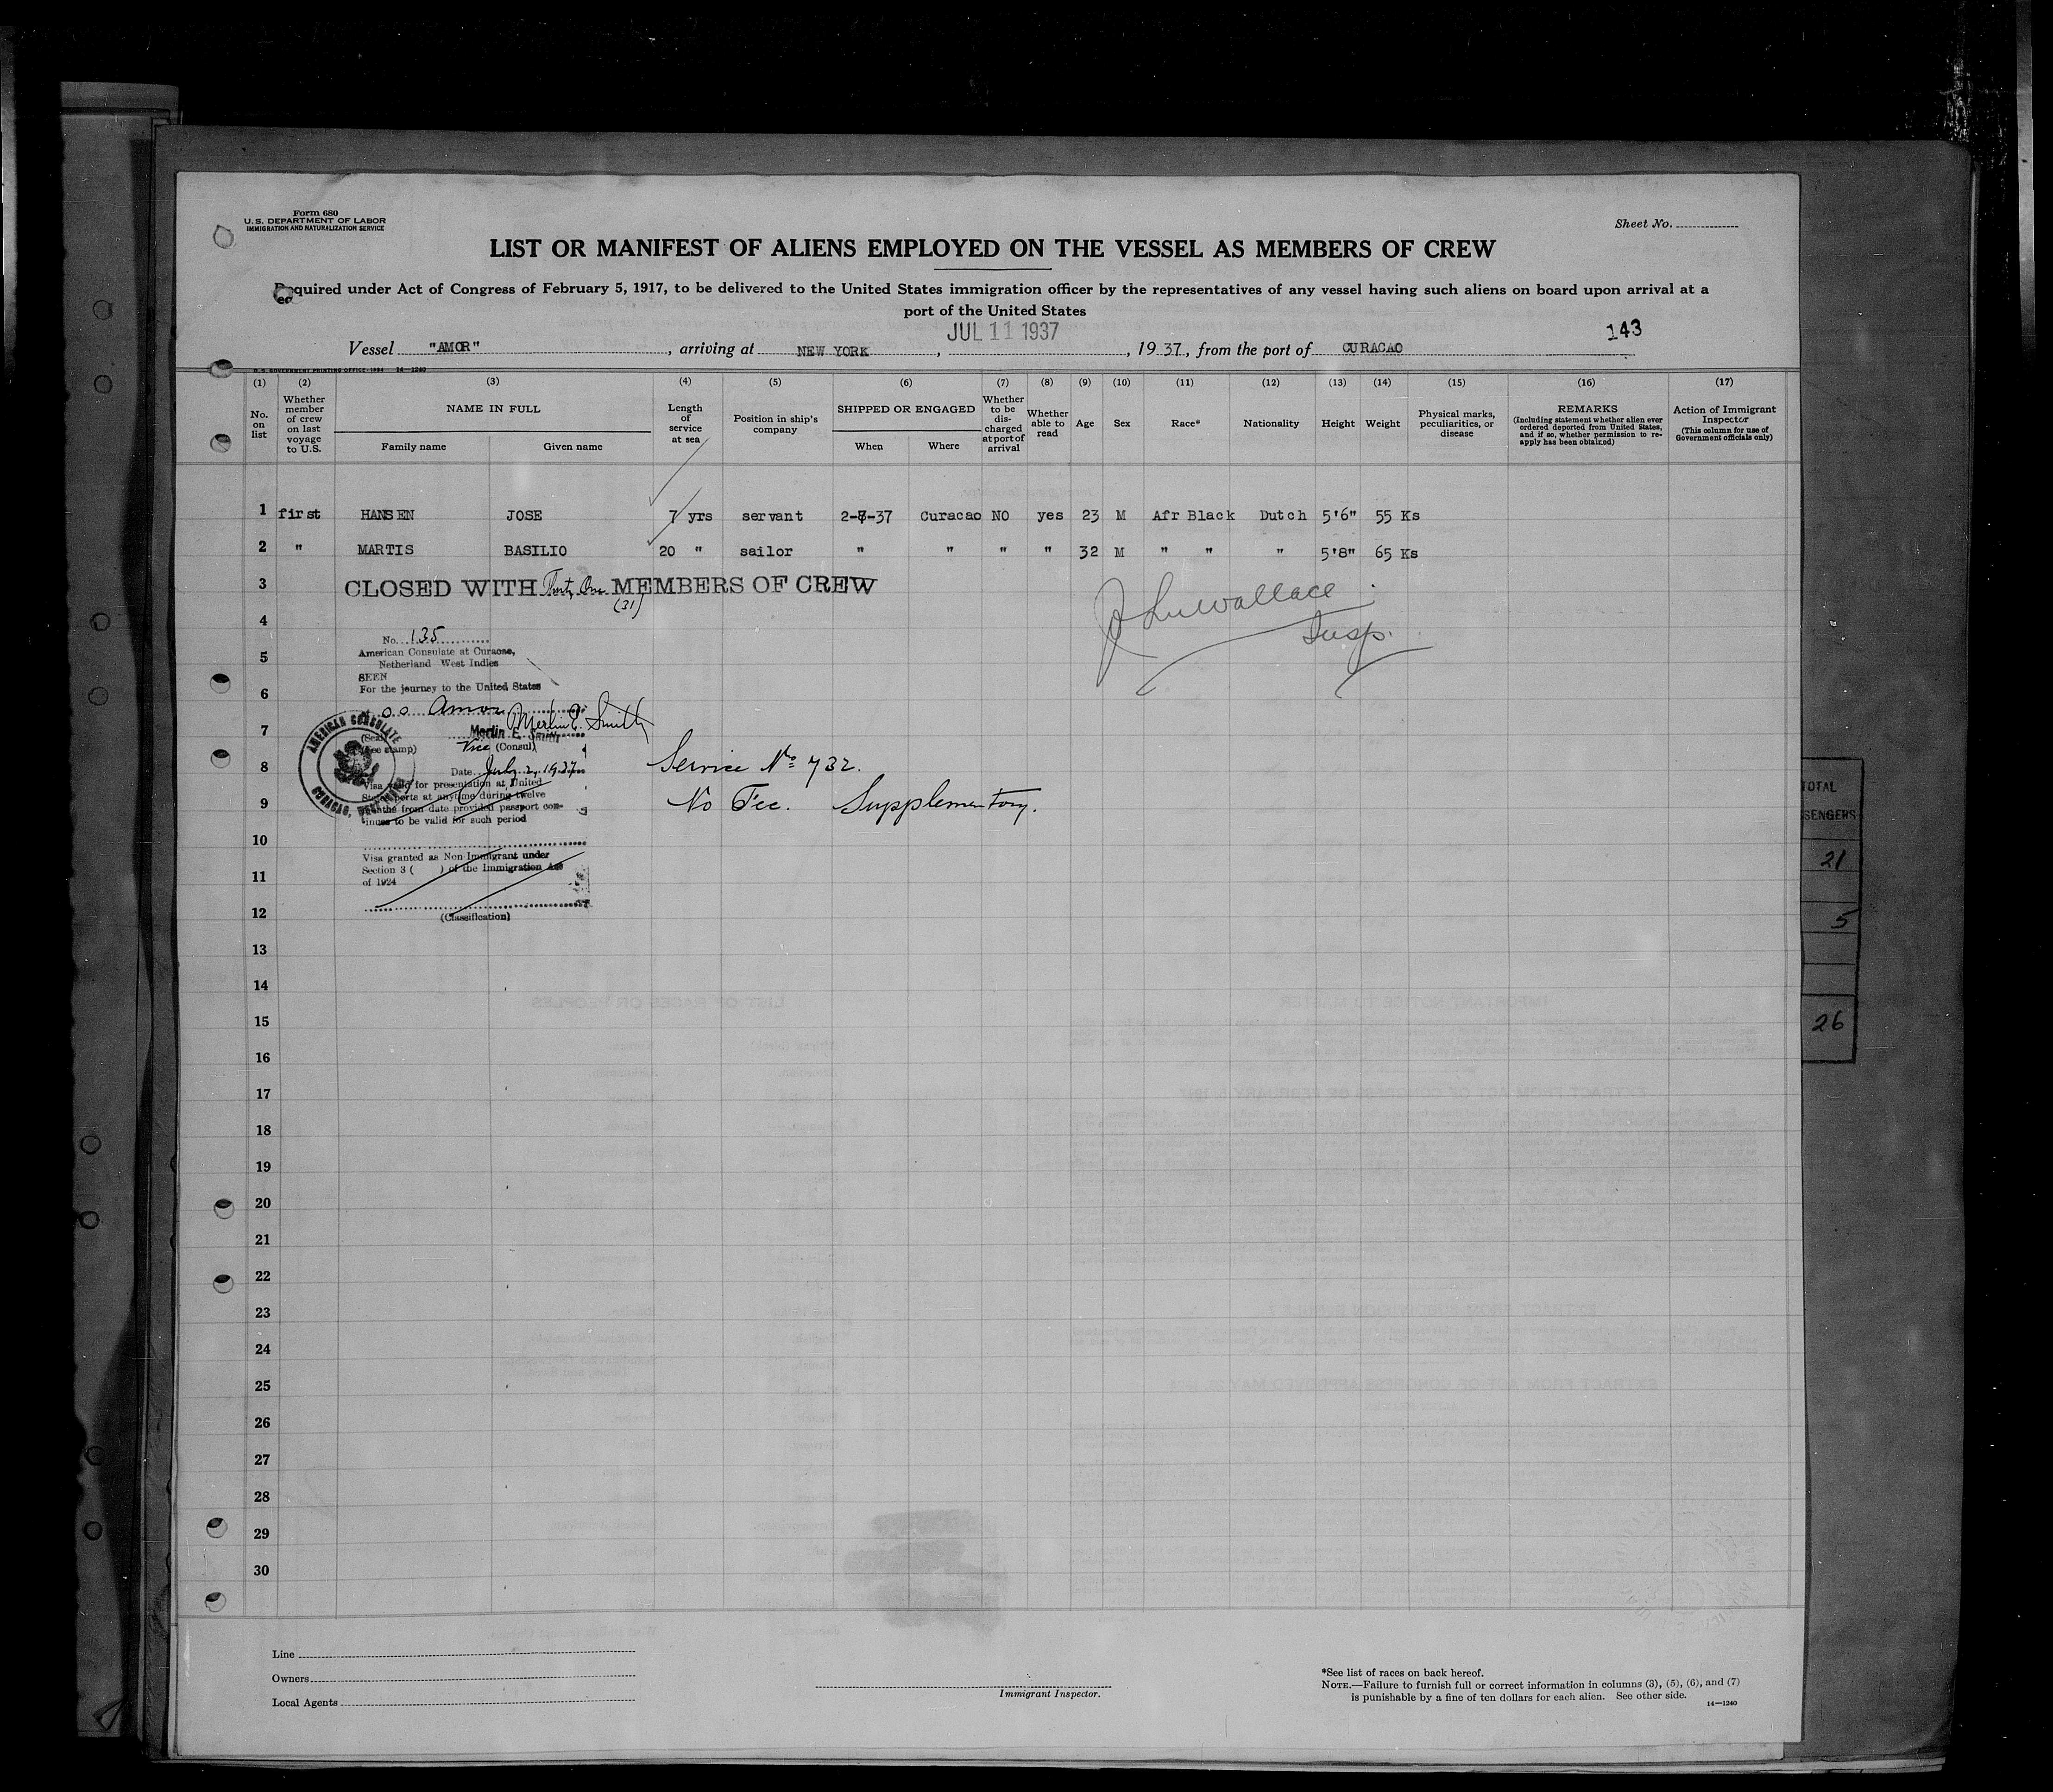 Form 680
U. S. DEPARTMENT OF LABOR
IMMIGRATION AND NATURALIZATION SERVICE
Sheet No.
LIST OR MANIFEST OF ALIENS EMPLOYED ON THE VESSEL AS MEMBERS OF CREW
Required under Act of Congress of February 5, 1917, to be delivered to the United States immigration officer by the representatives of any vessel having such aliens on board upon arrival at a
port of the United States
JUL 11 1937
143
Vessel "AMOR", arriving at NEW YORK, , 1937, from the port of CURACAO
U. S. GOVERNMENT PRINTING OFFICE: 1934 14—1240
(1) (2) (3) (4) (5) (6) (7) (8) (9) (10) (11) (12) (13) (14) (15) (16) (17)
No. on list
Whether member of crew on last voyage to U.S.
NAME IN FULL
Family name Given name
Length of service at sea
Position in ship's company
SHIPPED OR ENGAGED
When Where
Whether to be discharged at port of arrival
Whether able to read
Age
Sex
Race*
Nationality
Height
Weight
Physical marks, peculiarities, or disease
REMARKS
(Including statement whether alien ever ordered deported from United States, and if so, whether permission to reapply has been obtained)
Action of Immigrant Inspector
(This column for use of Government officials only)
1 first HANSEN JOSE 7 yrs servant 2-7-37 Curacao NO yes 23 M Afr Black Dutch 5'6" 55 Ks
2 " MARTIS BASILIO 20 " sailor " " " " 32 M " " " 5'8" 65 Ks
3 CLOSED WITH Thirty One MEMBERS OF CREW
(31)
Wallace
Insp.
4
No. 135
American Consulate at Curacao,
5
Netherland West Indies
SEEN
For the journey to the United States
6
Amor
Merlin E. Smith
7
Merlin E. Smith
(Seal)
(Fee stamp)
Vice (Consul)
AMERICAN CONSULATE
CURACAO,
8
Date July 2, 1937
Service Nº 732.
Visa valid for presentation at United
States ports at anytime during twelve
9
months from date provided passport con-
tinues to be valid for such period
No Fee. Supplementary.
10
Visa granted as Non-Immigrant under
Section 3 ( ) of the Immigration Act
11
of 1924
12
(Classification)
13
14
15
16
17
18
19
20
21
22
23
24
25
26
27
28
29
30
TOTAL
SENGERS
21
5
26
Line
Owners
Local Agents
Immigrant Inspector.
*See list of races on back hereof.
NOTE.—Failure to furnish full or correct information in columns (3), (5), (6), and (7)
is punishable by a fine of ten dollars for each alien. See other side.
14—1240